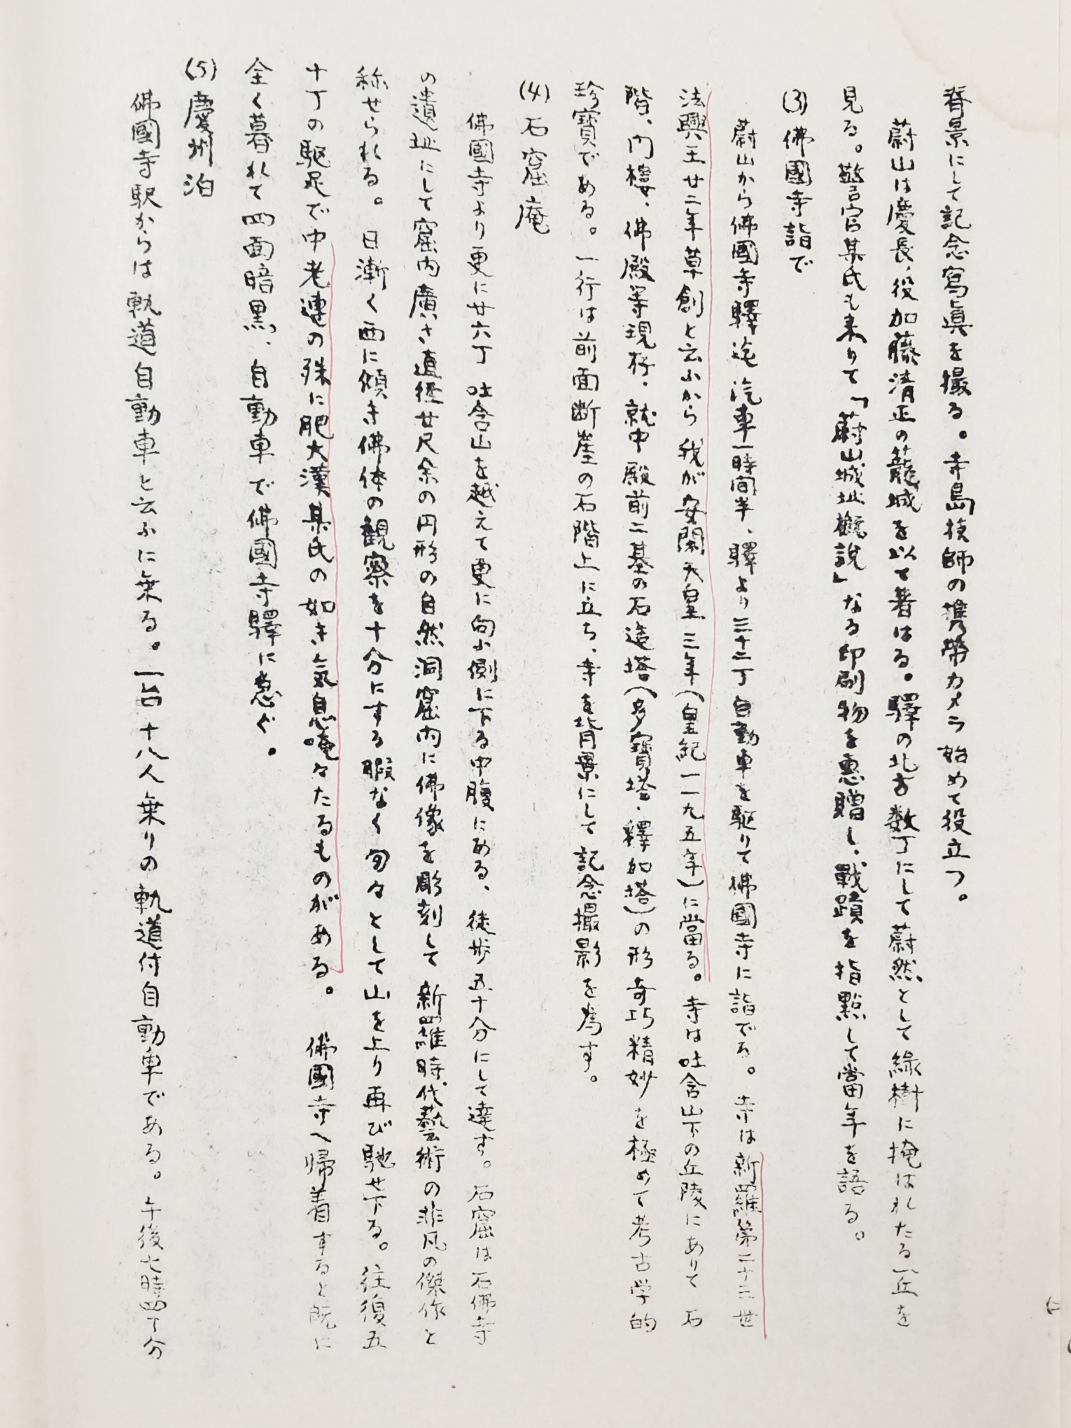 脊景にして記念寫眞を撮る。寺島技師の携帶カメラ始めて役立つ。
蔚山は慶長役加藤清正の籠城を以て著はる。驛の北方数丁にして蔚然として緑樹に掩はれたる一丘を
見る。警官某氏も来りて「蔚山城址概説」なる印刷物を惠贈し、戰蹟を指點して當年を語る。
(3) 佛國寺詣で
蔚山から佛國寺驛迄汽車一時間半、驛より三十二丁自動車を駆りて佛國寺に詣でる。寺は新羅第二十三世
法興王廿二年草創と云ふから我が安閑天皇三年(皇紀一一九五年)に當る。寺は吐含山下の丘陵にありて石
階、門樓、佛殿等現存、就中殿前二基の石造塔(多寶塔・釋如塔)の形奇巧精妙を極めて考古学的
珍寶である。一行は前面断崖の石階上に立ち、寺を背景にして記念撮影を為す。
(4) 石窟庵
佛國寺より更に廿六丁吐含山を越えて更に向ふ側に下る中腹にある、徒歩五十分にして達す。石窟は石佛寺
の遺址にして窟内廣さ直径廿尺余の円形の自然洞窟内に佛像を彫刻して新羅時代藝術の非凡の傑作と
称せられる。日漸く西に傾き佛体の観察を十分にする暇なく匆々として山を上り再び馳せ下る。往復五
十丁の駆足で中老連の殊に肥大漢某氏の如き氣息奄々たるものがある。佛國寺へ帰着すると既に
全く暮れて四面暗黒、自動車で佛國寺驛に急ぐ。
(5) 慶州泊
佛國寺駅からは軌道自動車と云ふに乗る。一台十八人乗りの軌道付自動車である。午後七時四十分
に